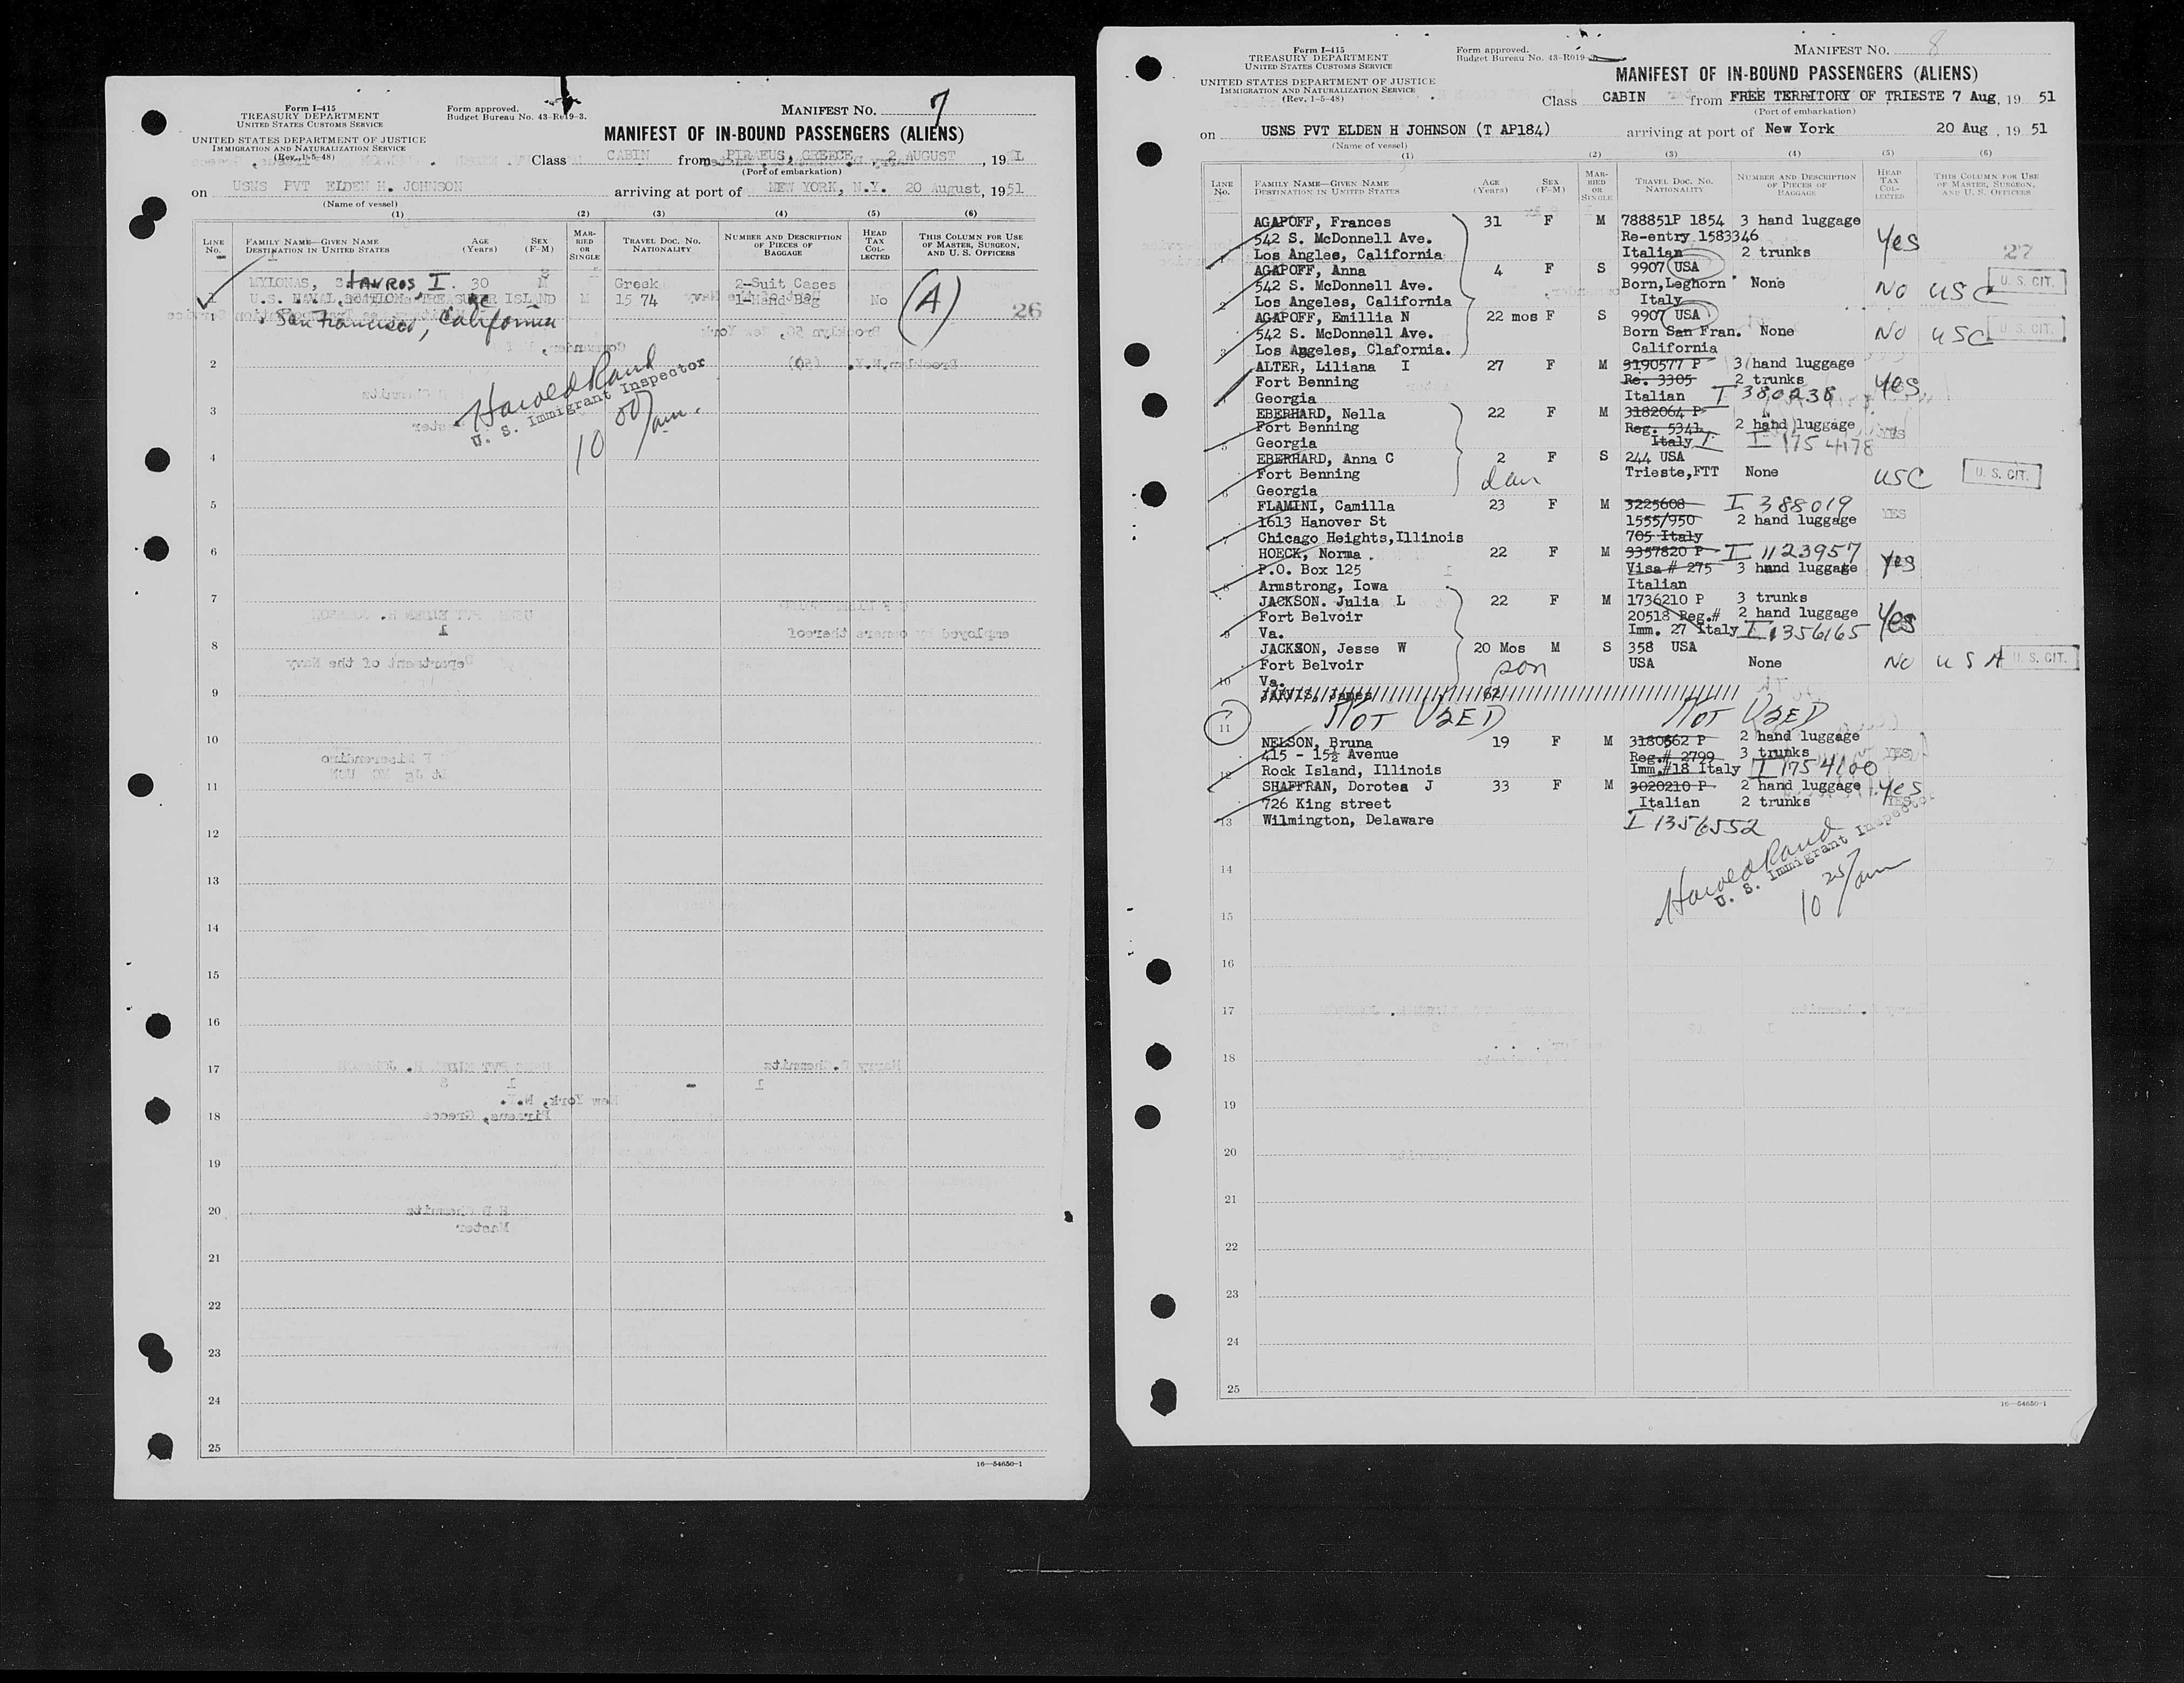 Form I-415
TREASURY DEPARTMENT
UNITED STATES CUSTOMS SERVICE
UNITED STATES DEPARTMENT OF JUSTICE
IMMIGRATION AND NATURALIZATION SERVICE
(Rev. 1-5-48)
Form approved.
Budget Bureau No. 43-R019-3.
MANIFEST NO. 7
MANIFEST OF IN-BOUND PASSENGERS (ALIENS)
Class CABIN from PIRAEUS, GREECE, 2 AUGUST, 1951
(Port of embarkation)
on USNS PVT ELDEN H. JOHNSON arriving at port of NEW YORK, N.Y. 20 August, 1951
(Name of vessel)
(1) (2) (3) (4) (5) (6)
LINE No. FAMILY NAME—GIVEN NAME DESTINATION IN UNITED STATES AGE (Years) SEX (F-M) MARRIED OR SINGLE TRAVEL DOC. NO. NATIONALITY NUMBER AND DESCRIPTION OF PIECES OF BAGGAGE HEAD TAX COLLECTED THIS COLUMN FOR USE OF MASTER, SURGEON, AND U. S. OFFICERS
MYLONAS, Stavros I. 30 M Greek 2-Suit Cases
U.S. NAVAL STATION TREASURE ISLAND M 15 74 1-Hand Bag No (A) 26
1 San Francisco, California
2
Harold Rand
U. S. Immigrant Inspector
10 00/am.
3
4
5
6
7
8
9
10
11
12
13
14
15
16
17
18
19
20
21
22
23
24
25
16—54650-1
Form I-415
TREASURY DEPARTMENT
UNITED STATES CUSTOMS SERVICE
UNITED STATES DEPARTMENT OF JUSTICE
IMMIGRATION AND NATURALIZATION SERVICE
(Rev. 1-5-48)
Form approved.
Budget Bureau No. 43-R019-
MANIFEST NO. 8
MANIFEST OF IN-BOUND PASSENGERS (ALIENS)
Class CABIN from FREE TERRITORY OF TRIESTE 7 Aug, 1951
(Port of embarkation)
on USNS PVT ELDEN H JOHNSON (T AP184) arriving at port of New York 20 Aug, 1951
(Name of vessel)
(1) (2) (3) (4) (5) (6)
LINE No. FAMILY NAME—GIVEN NAME DESTINATION IN UNITED STATES AGE (Years) SEX (F-M) MARRIED OR SINGLE TRAVEL DOC. NO. NATIONALITY NUMBER AND DESCRIPTION OF PIECES OF BAGGAGE HEAD TAX COLLECTED THIS COLUMN FOR USE OF MASTER, SURGEON, AND U. S. OFFICERS
AGAPOFF, Frances 31 F M 788851P 1854 3 hand luggage
542 S. McDonnell Ave. Re-entry 1583346 Yes
1 Los Angles, California Italian 2 trunks 27
AGAPOFF, Anna 4 F S 9907 USA
542 S. McDonnell Ave. Born,Leghorn None No USC U. S. CIT.
2 Los Angeles, California Italy
AGAPOFF, Emillia N 22 mos F S 9907 USA
542 S. McDonnell Ave. Born San Fran. None No USC U. S. CIT.
3 Los Angeles, Clafornia. California
ALTER, Liliana I 27 F M 3190577 P 3 hand luggage
Fort Benning Re. 3305 2 trunks Yes
4 Georgia Italian I 380238
EBERHARD, Nella 22 F M 3182064 P
Fort Benning Reg. 5341 2 hand luggage YES
5 Georgia Italy I I 1754178
EBERHARD, Anna C 2 F S 244 USA
Fort Benning dau Trieste,FTT None USC U. S. CIT.
6 Georgia
FLAMINI, Camilla 23 F M 3225608 I 388019
1613 Hanover St 1555/950 2 hand luggage YES
7 Chicago Heights,Illinois 705 Italy
HOECK, Norma . 22 F M 3357820 P I 1123957
P.O. Box 125 Visa # 275 3 hand luggage Yes
8 Armstrong, Iowa Italian
JACKSON. Julia L 22 F M 1736210 P 3 trunks
Fort Belvoir 20518 Reg.# 2 hand luggage Yes
9 Va. Imm. 27 Italy I 1356165
JACKSON, Jesse W 20 Mos M S 358 USA
Fort Belvoir son USA None No USA U. S. CIT.
10 Va.
JARVIS, James 62
11 NOT USED NOT USED
NELSON, Bruna 19 F M 3180562 P 2 hand luggage
415 - 15½ Avenue Reg.# 2799 3 trunks YES
12 Rock Island, Illinois Imm.#18 Italy I 1754100
SHAFFRAN, Dorotea J 33 F M 3020210 P 2 hand luggage Yes
726 King street Italian 2 trunks YES
13 Wilmington, Delaware I 1356552
Harold Rand
U. S. Immigrant Inspector
10 25/am
14
15
16
17
18
19
20
21
22
23
24
25
16—54650-1